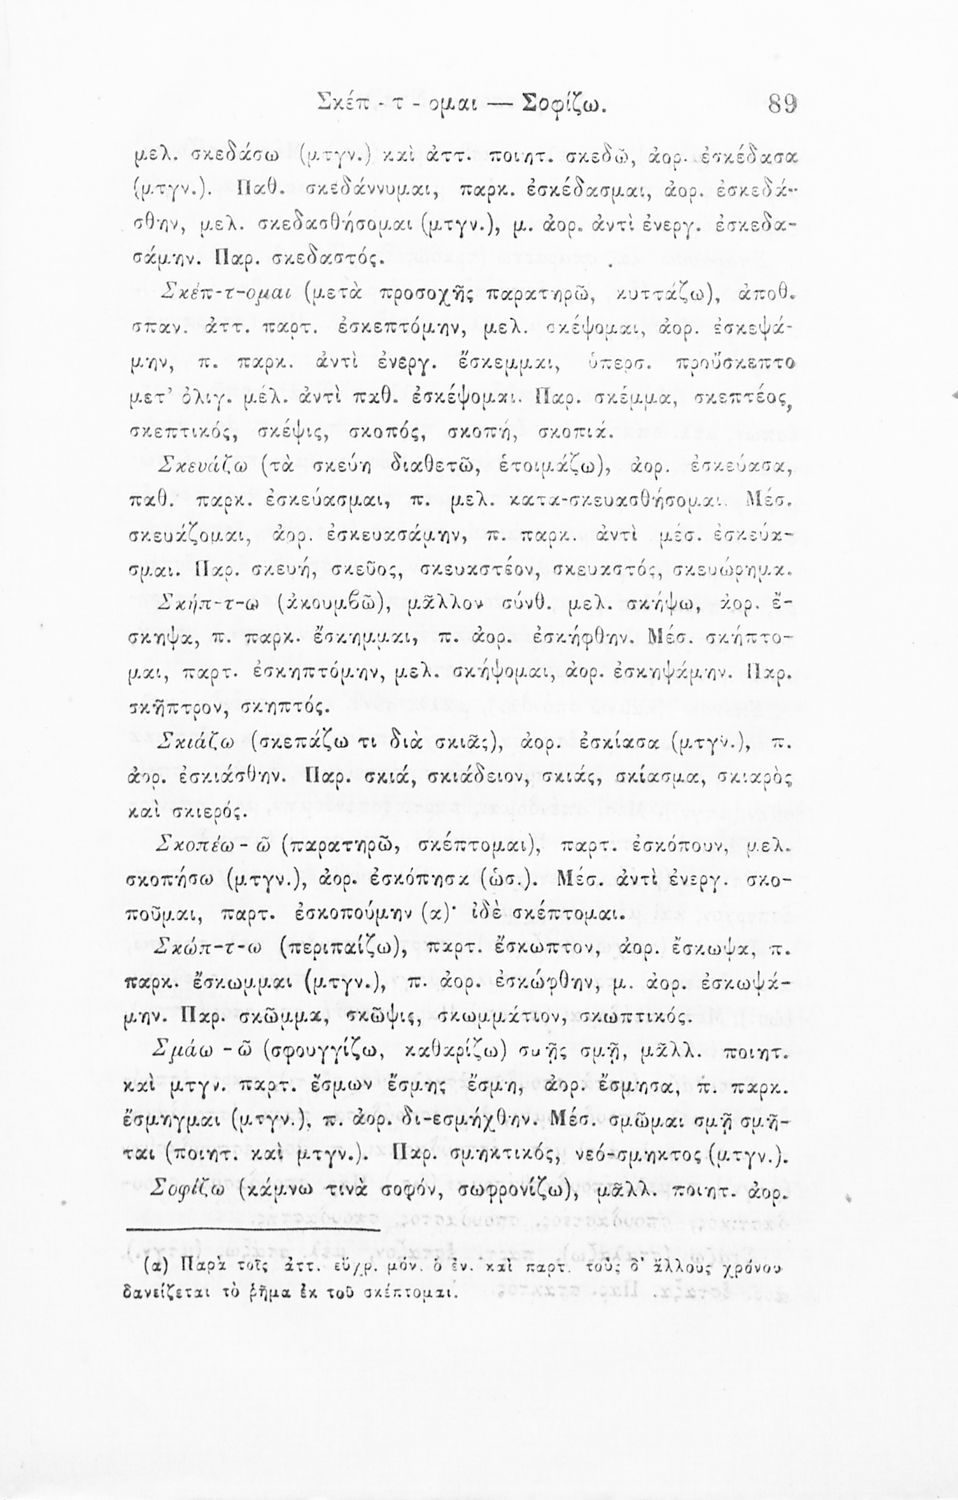 Σκέπ - τ - ομαι — Σοφίζω. 89
μελ. σκεδάσω (μτγν.) καὶ ἀττ. ποιητ. σκεδῶ, ἀορ. ἐσκέδασα
(μτγν.). Παθ. σκεδάννυμαι, παρκ. ἐσκέδασμαι, ἀορ. ἐσκεδά-
σθην, μελ. σκεδασθήσομαι (μτγν.), μ. ἀορ. ἀντὶ ἐνεργ. ἐσκεδα-
σάμην. Παρ. σκεδαστός.
Σκέπ-τ-ομαι (μετὰ προσοχῆς παρατηρῶ, κυττάζω), ἀποθ.
σπαν. ἀττ. παρτ. ἐσκεπτόμην, μελ. σκέψομαι, ἀορ. ἐσκεψά-
μην, π. παρκ. ἀντὶ ἐνεργ. ἔσκεμμαι, ὑπερσ. προὔσκεπτο
μετ’ ὀλιγ. μέλ. ἀντὶ παθ. ἐσκέψομαι. Παρ. σκέμμα, σκεπτέος,
σκεπτικός, σκέψις, σκοπός, σκοπή, σκοπιά.
Σκευάζω (τὰ σκεύη διαθετῶ, ἑτοιμάζω), ἀορ. ἐσκεύασα,
παθ. παρκ. ἐσκεύασμαι, π. μελ. κατα-σκευασθήσομαι. Μέσ.
σκευάζομαι, ἀορ. ἐσκευασάμην, π. παρκ. ἀντὶ μέσ. ἐσκεύα-
σμαι. Παρ. σκευή, σκεῦος, σκευαστέον, σκευαστός, σκευώρημα.
Σκήπ-τ-ω (ἀκουμβῶ), μᾶλλον σύνθ. μελ. σκήψω, ἀορ. ἔ-
σκηψα, π. παρκ. ἔσκημμαι, π. ἀορ. ἐσκήφθην. Μέσ. σκήπτο-
μαι, παρτ. ἐσκηπτόμην, μελ. σκήψομαι, ἀορ. ἐσκηψάμην. Παρ.
σκῆπτρον, σκηπτός.
Σκιάζω (σκεπάζω τι διὰ σκιᾶς), ἀορ. ἐσκίασα (μτγν.), π.
ἀορ. ἐσκιάσθην. Παρ. σκιά, σκιάδειον, σκιάς, σκίασμα, σκιαρὸς
καὶ σκιερός.
Σκοπέω - ῶ (παρατηρῶ, σκέπτομαι), παρτ. ἐσκόπουν, μελ.
σκοπήσω (μτγν.), ἀορ. ἐσκόπησα (ὡσ.). Μέσ. ἀντὶ ἐνεργ. σκο-
ποῦμαι, παρτ. ἐσκοπούμην (α)· ἰδὲ σκέπτομαι.
Σκώπ-τ-ω (περιπαίζω), παρτ. ἔσκωπτον, ἀορ. ἔσκωψα, π.
παρκ. ἔσκωμμαι (μτγν.), π. ἀορ. ἐσκώφθην, μ. ἀορ. ἐσκωψά-
μην. Παρ. σκῶμμα, σκῶψις, σκωμμάτιον, σκωπτικός.
Σμάω - ῶ (σφουγγίζω, καθαρίζω) σμῇς σμῇ, μᾶλλ. ποιητ.
καὶ μτγν. παρτ. ἔσμων ἔσμης ἔσμη, ἀορ. ἔσμησα, π. παρκ.
ἔσμηγμαι (μτγν.), π. ἀορ. δι-εσμήχθην. Μέσ. σμῶμαι σμῇ σμῆ-
ται (ποιητ. καὶ μτγν.). Παρ. σμηκτικός, νεό-σμηκτος (μτγν.).
Σοφίζω (κάμνω τινὰ σοφόν, σωφρονίζω), μᾶλλ. ποιητ. ἀορ.
(α) Παρὰ τοῖς ἀττ. εὔχρ. μόν. ὁ ἐν. καὶ παρτ. τοὺς δ’ ἄλλους χρόνου
δανείζεται τὸ ῥῆμα ἐκ τοῦ σκέπτομαι.